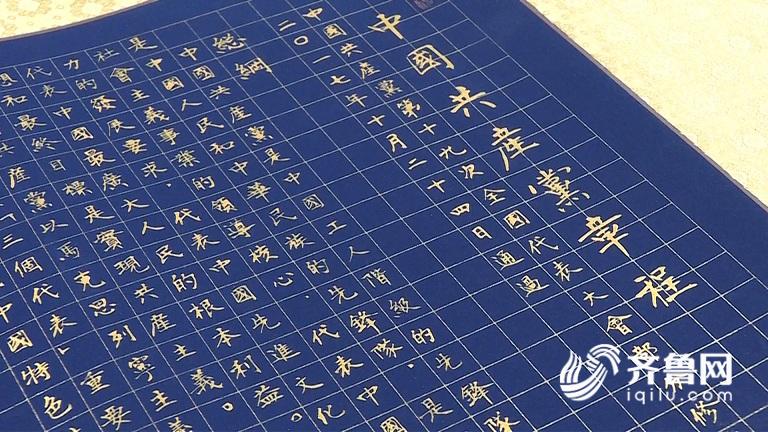 中國共產黨章程
中國共產黨第十九次全國代表大會部
修
二〇一七年十月二十四日通過
總綱
中國共產黨是中國工人階級的先鋒隊
中國人民和中華民族的先鋒隊,是
是社會主義事業的領導核心,代表中國
力的發展要求,代表中國先進文化
代表中國最廣大人民的根本利益。
想和最終目標是實現共產主義。
產黨以馬克思列寧主義
三個代表重要
中國特色
齐鲁网
iqilu.com